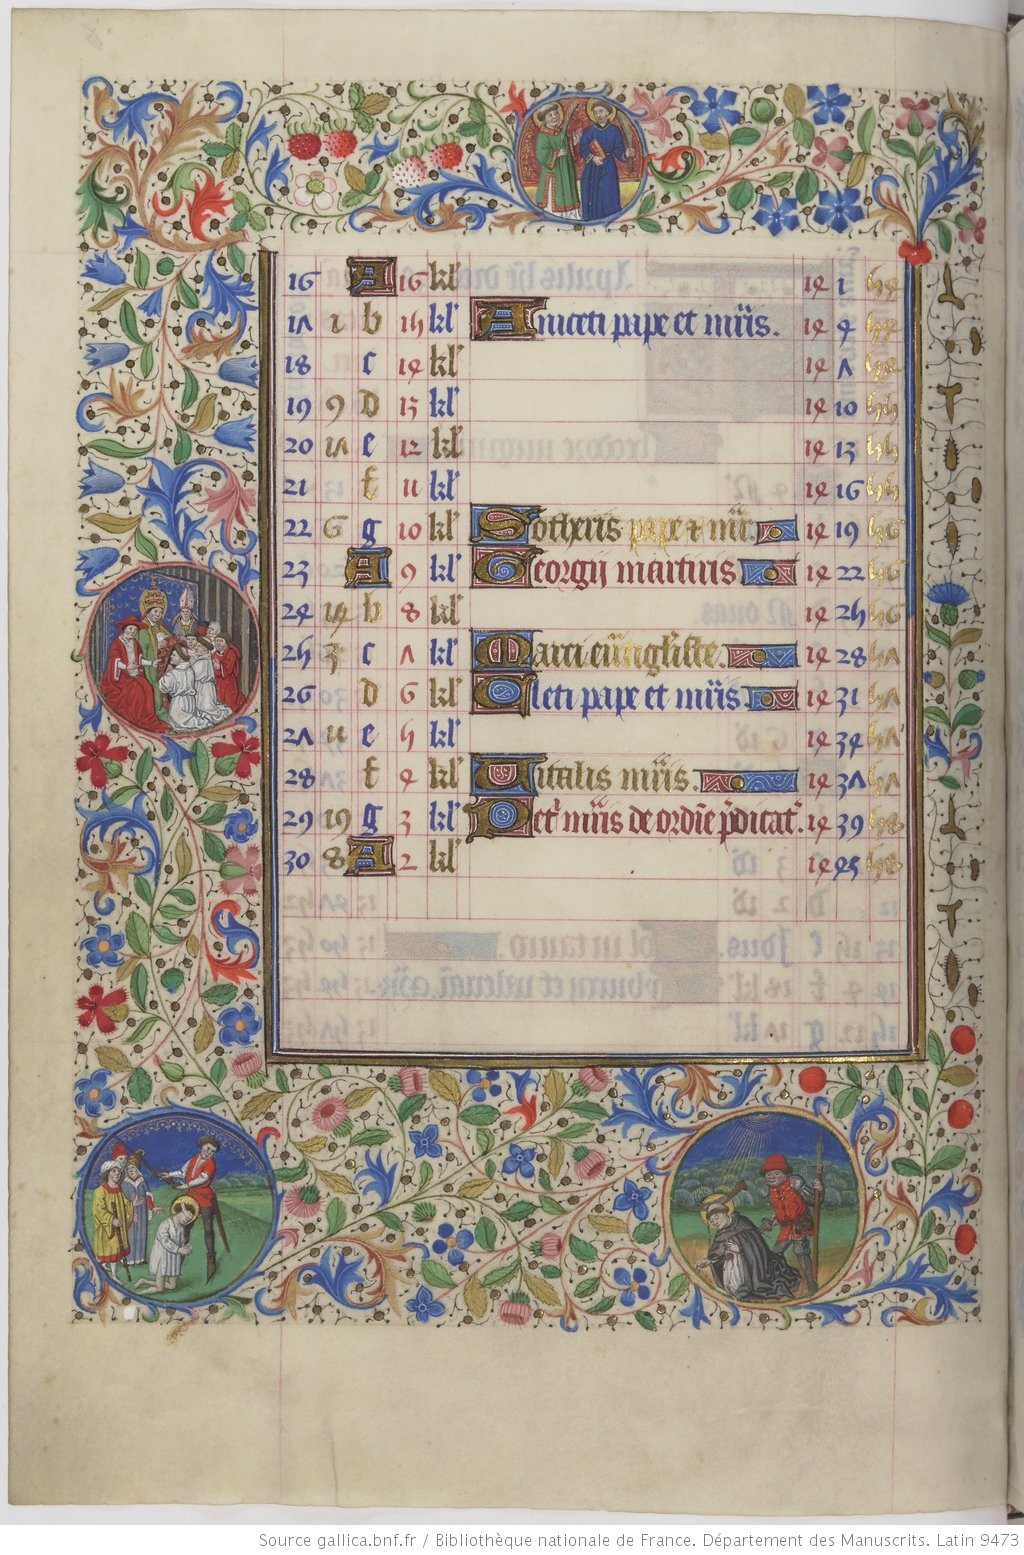 16 A 16 kl' 14 1 54
17 1 b 15 kl' Aniceti pape et mr̄is. 14 4 54
18 c 14 kl' 14 7 54
19 9 D 13 kl' 14 10 55
20 17 e 12 kl' 14 13 55
21 f 11 kl' 14 16 55
22 6 g 10 kl' Sotheris pape et mr̄. 14 19 56
23 A 9 kl' Georgij martiris 14 22 56
24 14 b 8 kl' 14 25 56
25 3 c 7 kl' Marci eūāgl'iste. 14 28 57
26 d 6 kl' Cleti pape et mr̄is. 14 31 57
27 11 e 5 kl' 14 34 57
28 f 4 kl' Vitalis mr̄is. 14 37 57
29 19 g 3 kl' Petr' mr̄is de ordīe p̄dicat'. 14 39 58
30 8 A 2 kl' 14 45 58
Source gallica.bnf.fr / Bibliothèque nationale de France. Département des Manuscrits. Latin 9473